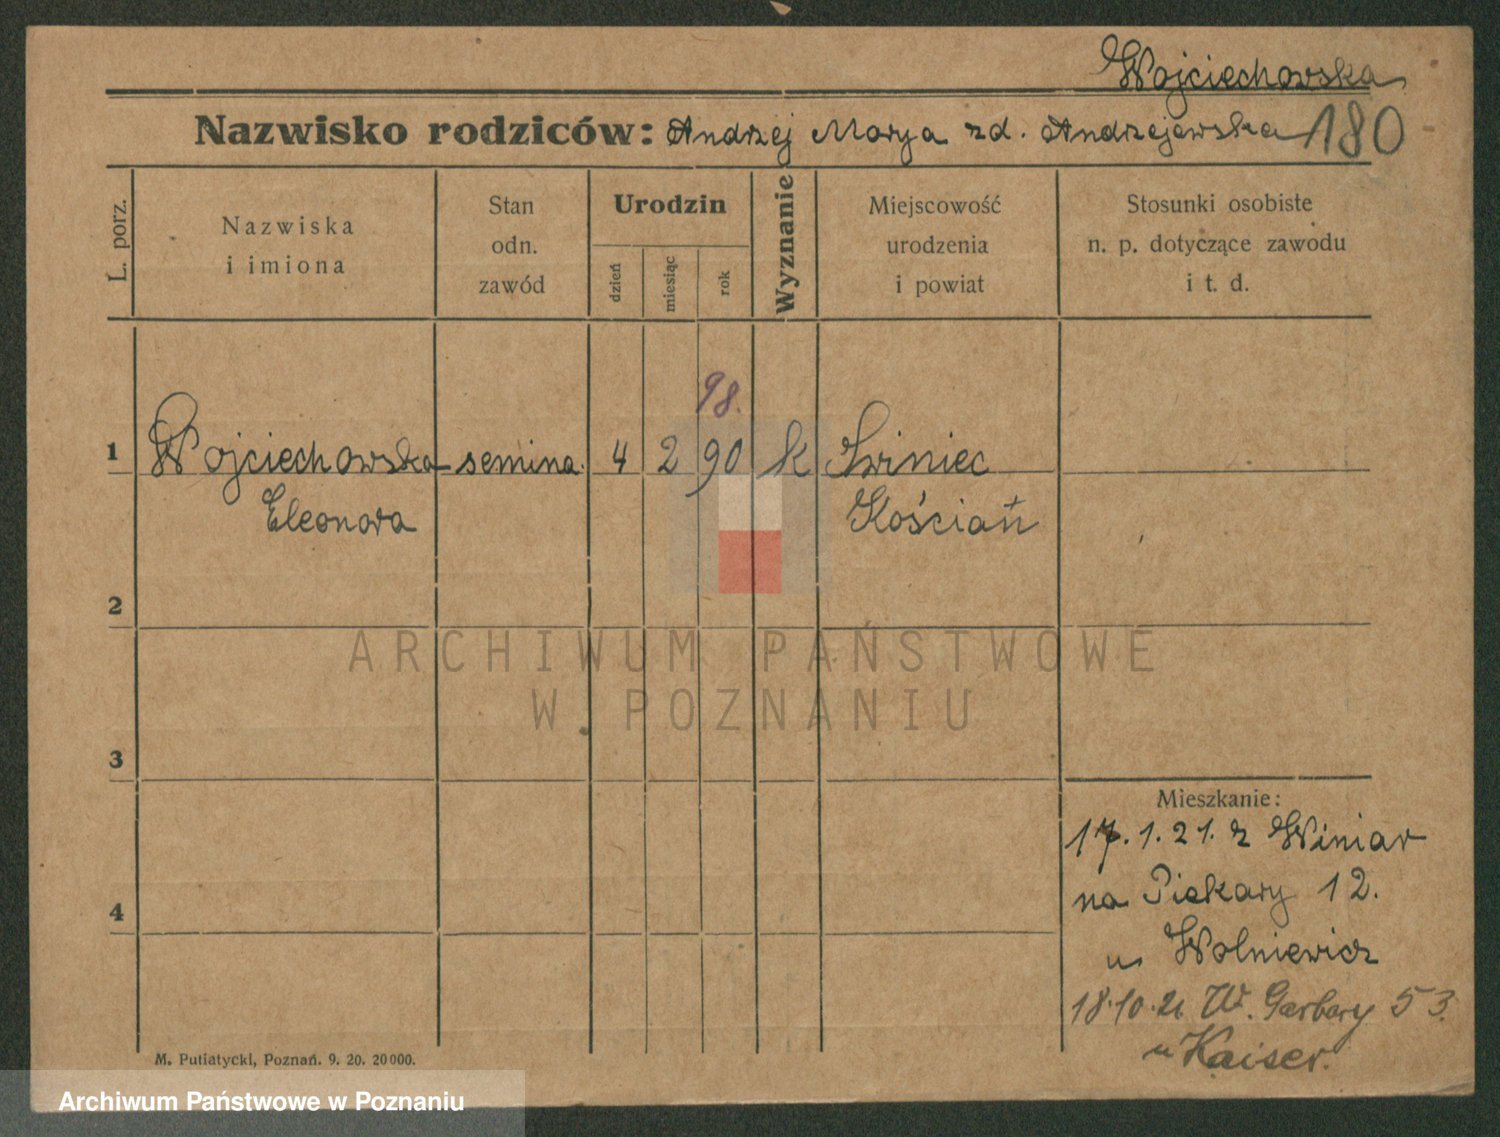 Wojciechowska
Nazwisko rodziców: Andrzej Marya zd. Andrzejewska 180
L. porz.
Nazwiska
i imiona
Stan
odn.
zawód
Urodzin
dzień
miesiąc
rok
Wyznanie
Miejscowość
urodzenia
i powiat
Stosunki osobiste
n. p. dotyczące zawodu
i t. d.
98.
1 Wojciechowska semina. 4 2 90 k Zwiniec
Eleonora Kościań
2
3
4
ARCHIWUM PAŃSTWOWE
W POZNANIU
Mieszkanie:
17.1.21. z Winiar
na Piekary 12.
u Wolniewicz
18.10.21. W. Garbary 53.
u Kaiser.
M. Putiatycki, Poznań. 9. 20. 20000.
Archiwum Państwowe w Poznaniu